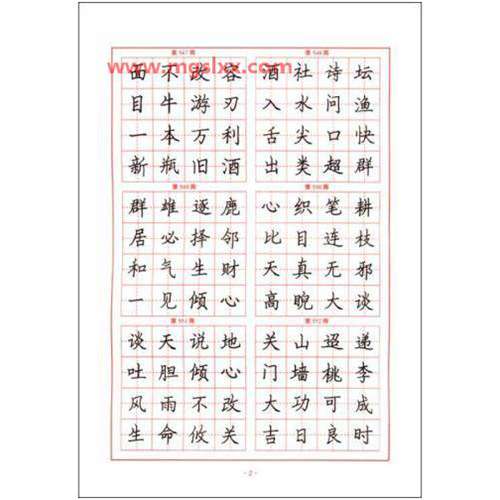 www.mgslxx.com
面不改容
目牛游刃
一本万利
新瓶旧酒
酒社诗坛
入水问渔
舌尖口快
出类超群
群雄逐鹿
居必择邻
和气生财
一见倾心
心织笔耕
比目连枝
天真无邪
高睨大谈
谈天说地
吐胆倾心
风雨不改
生命攸关
关山迢递
门墙桃李
大功可成
吉日良时
- 2 -